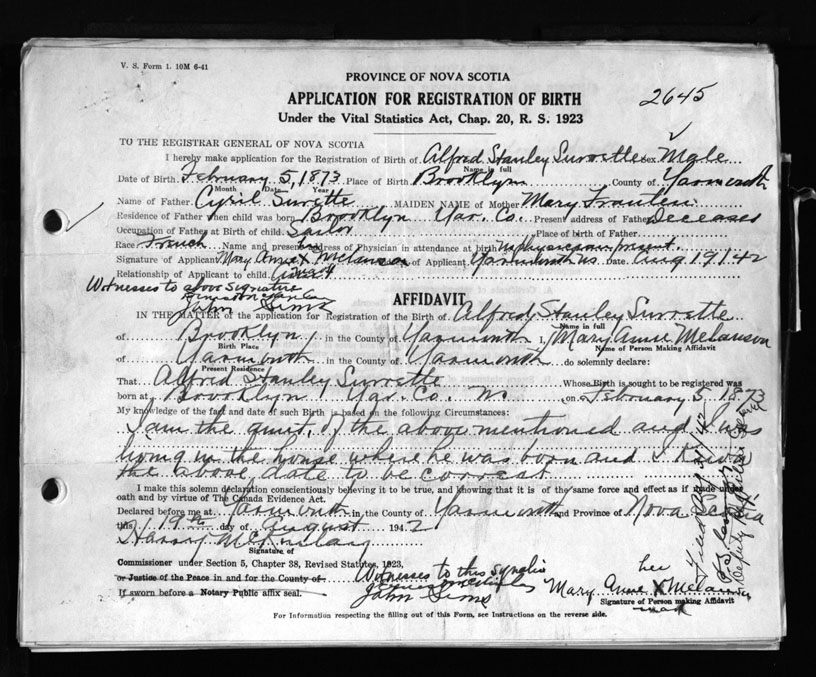 V. S. Form 1. 10M 6-41
PROVINCE OF NOVA SCOTIA
APPLICATION FOR REGISTRATION OF BIRTH
2645
Under the Vital Statistics Act, Chap. 20, R. S. 1923
TO THE REGISTRAR GENERAL OF NOVA SCOTIA
I hereby make application for the Registration of Birth of Alfred Stanley Surrette Sex Male
Name in full
Date of Birth February 5, 1873 Place of Birth Brooklyn County of Yarmouth
Month Date Year
Name of Father Cyril Surette MAIDEN NAME of Mother Mary
Residence of Father when child was born Brooklyn Yar. Co. Present address of Father Deceased
Occupation of Father at Birth of child Sailor Place of birth of Father
Race French Name and present address of Physician in attendance at birth No physician present.
Signature of Applicant Mary Anne X Melanson of Applicant Yarmouth NS Date Aug 19 1942
Relationship of Applicant to child Aunt
Witnesses to above signature
John Sims
AFFIDAVIT
IN THE MATTER of the application for Registration of the Birth of Alfred Stanley Surrette
Name in full
of Brooklyn in the County of Yarmouth I, Mary Anne Melanson
Birth Place Name of Person Making Affidavit
of Yarmouth in the County of Yarmouth do solemnly declare:
Present Residence
That Alfred Stanley Surrette Whose Birth is sought to be registered was
born at Brooklyn Yar. Co. NS on February 5 1873
My knowledge of the fact and date of such Birth is based on the following Circumstances:
I am the aunt of the above mentioned and I was
living in the house where he was born and I know
the above date to be correct
I make this solemn declaration conscientiously believing it to be true, and knowing that it is of the same force and effect as if made under
oath and by virtue of The Canada Evidence Act.
Declared before me at Yarmouth in the County of Yarmouth and Province of Nova Scotia
this 19th day of August 1942
Harry
Signature of
Commissioner under Section 5, Chapter 38, Revised Statutes, 1923,
or Justice of the Peace in and for the County of
If sworn before a Notary Public affix seal.
Witnesses to this
John Sims
her
Mary Anne X Melanson
Signature of Person making Affidavit
mark
Deputy Registrar General
For Information respecting the filling out of this Form, see Instructions on the reverse side.